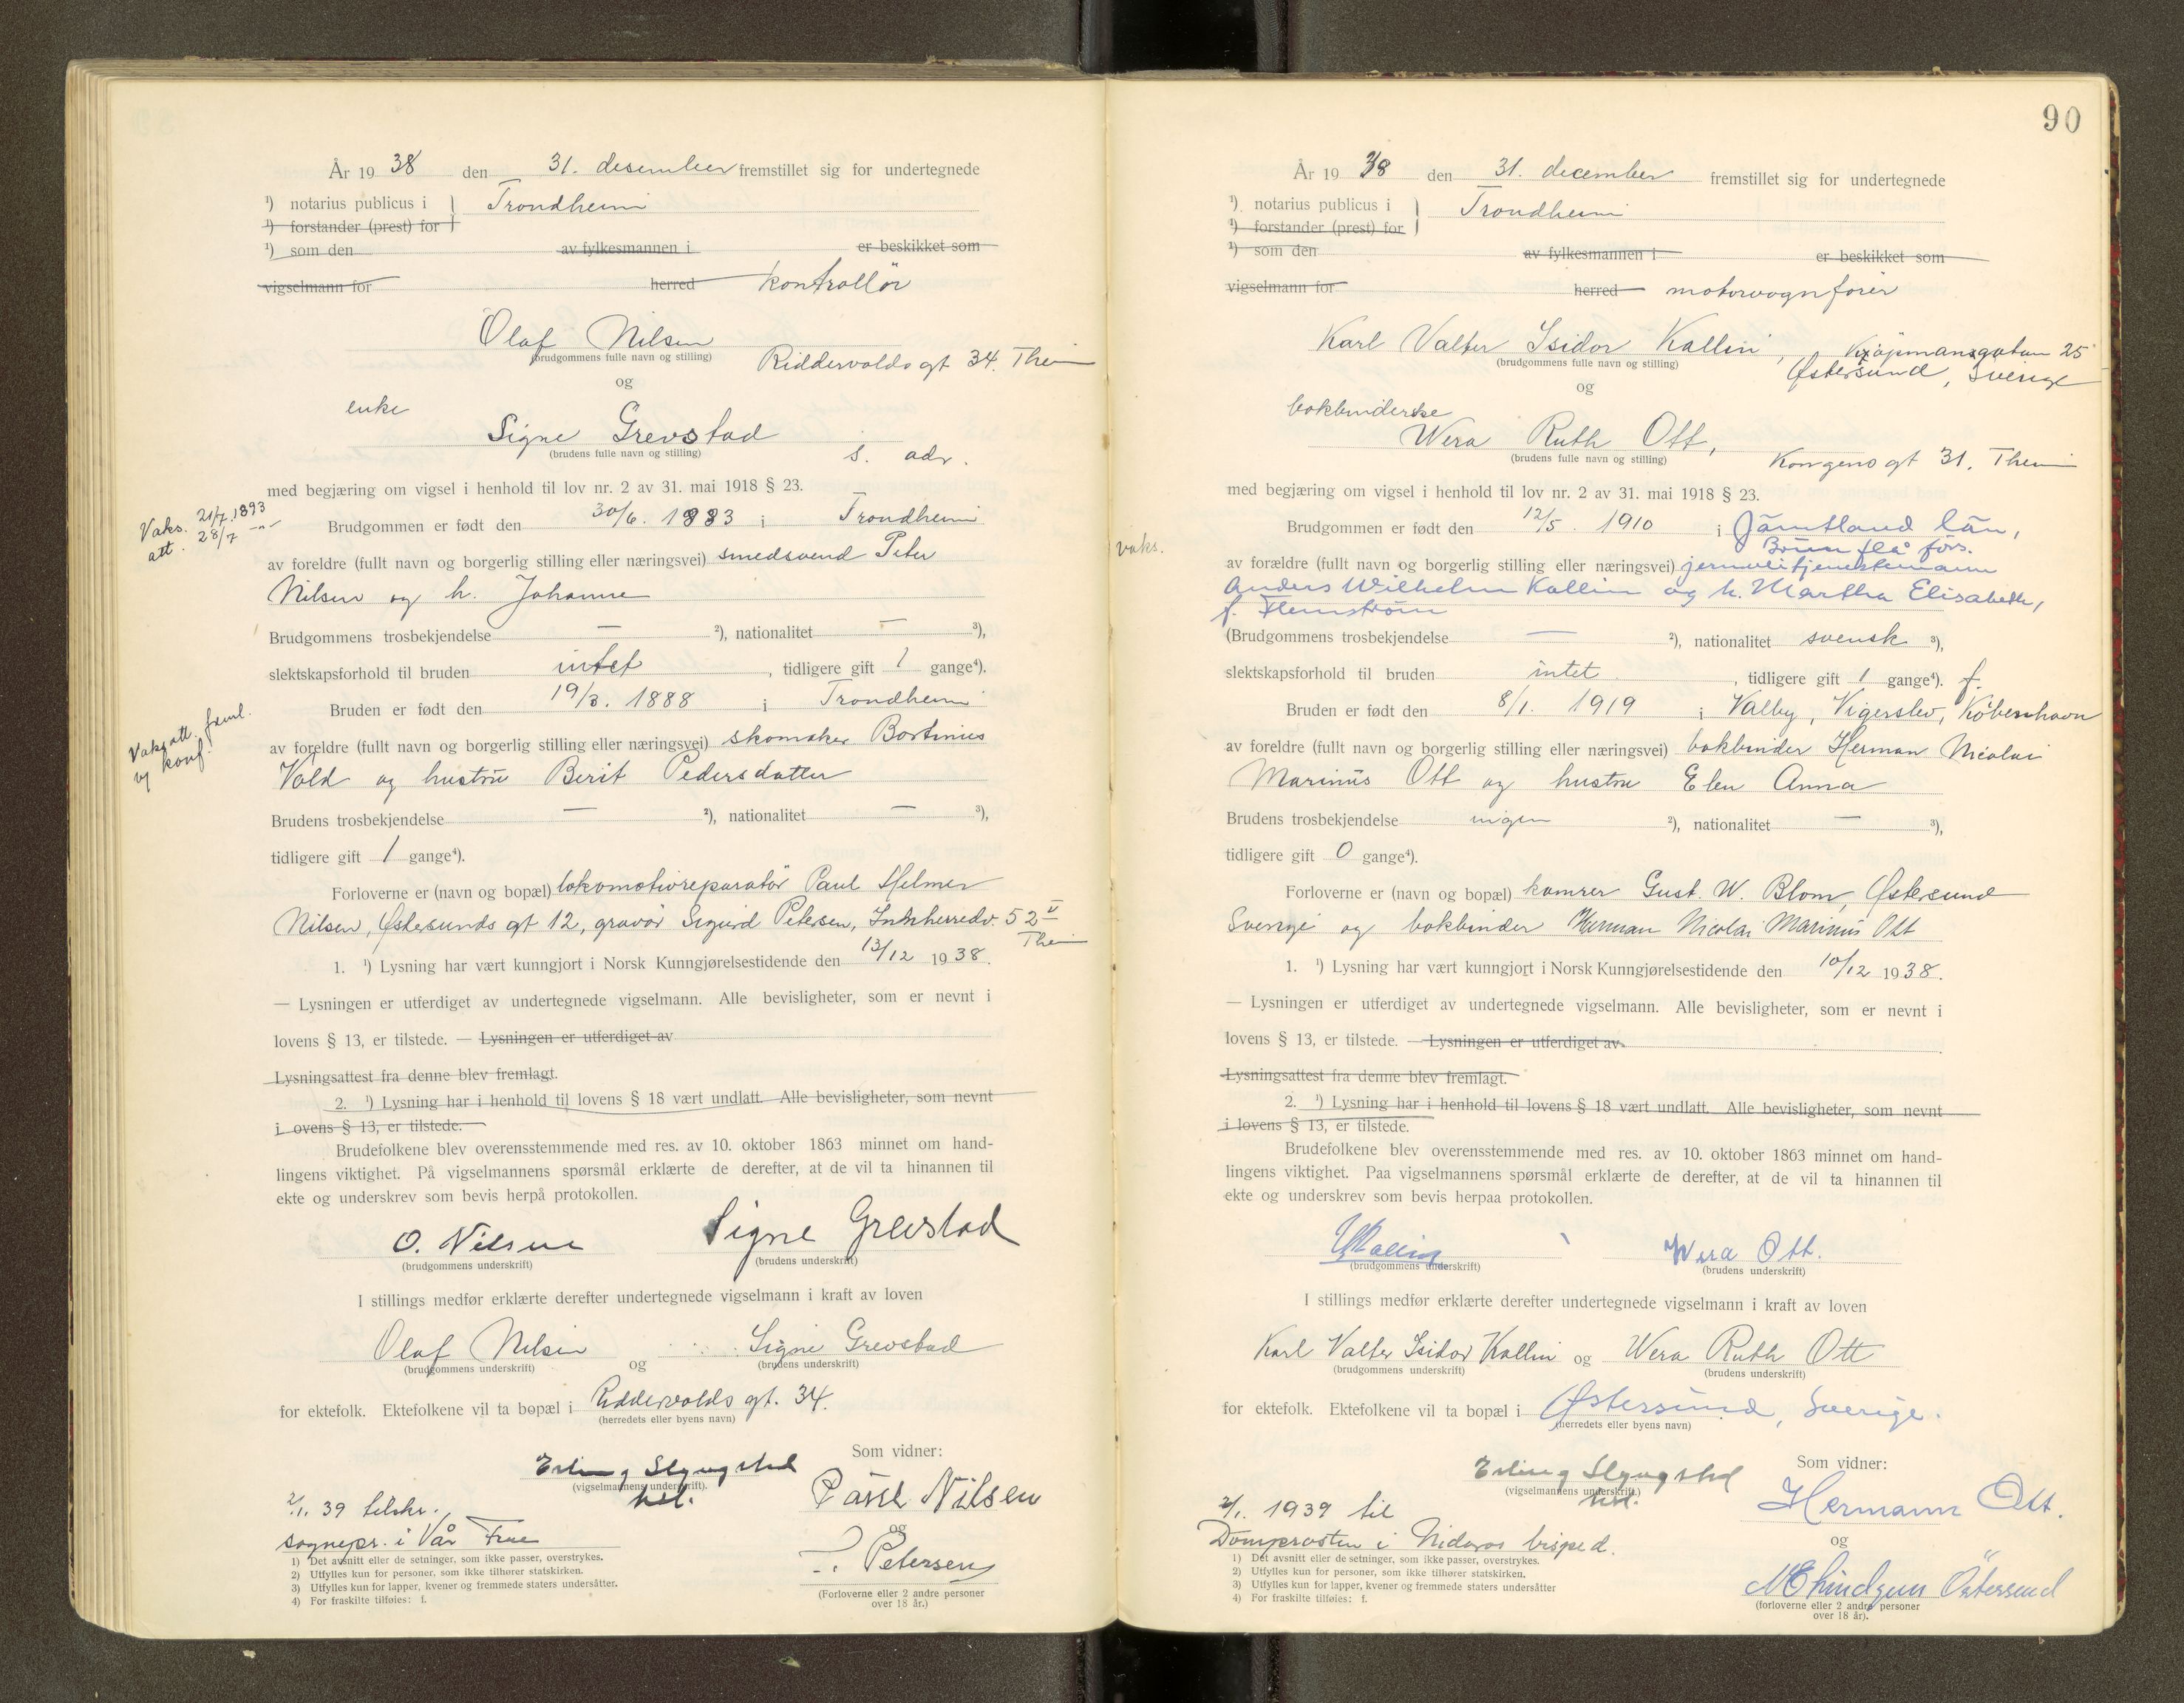 År 19 38 den 31. desember fremstillet sig for undertegnede
¹) notarius publicus i } Trondheim
¹) forstander (prest) for
¹) som den av fylkesmannen i er beskikket som
vigselmann for herred kontrollör
Olaf Nilsen
(brudgommens fulle navn og stilling) Riddervolds gt 34. Theim
og
enke
Signe Grevstad
(brudens fulle navn og stilling) s. adr.
med begjæring om vigsel i henhold til lov nr. 2 av 31. mai 1918 § 23.
Vaks. 21/7.1893
att. 28/7 -"-
Brudgommen er født den 30/6. 1883 i Trondheim
av foreldre (fullt navn og borgerlig stilling eller næringsvei) smedsvend Peter
Nilsen og h. Johanne
Brudgommens trosbekjendelse — ²), nationalitet — ³),
slektskapsforhold til bruden intet, tidligere gift 1 gange⁴).
Bruden er født den 19/3. 1888 i Trondheim
Vaksatt. freml.
og konf.
av foreldre (fullt navn og borgerlig stilling eller næringsvei) skomaker Bortinius
Vold og hustru Berit Pedersdatter
Brudens trosbekjendelse — ²), nationalitet — ³),
tidligere gift 1 gange⁴).
Forloverne er (navn og bopæl) lokomotivreparatör Paul Helmer
Nilsen, Østersunds gt 12, gravör Sigurd Petersen, Innherredv. 52 II
Theim
1. ¹) Lysning har vært kunngjort i Norsk Kunngjørelsestidende den 13/12 1938.
— Lysningen er utferdiget av undertegnede vigselmann. Alle bevisligheter, som er nevnt i
lovens § 13, er tilstede. — Lysningen er utferdiget av
Lysningsattest fra denne blev fremlagt.
2. ¹) Lysning har i henhold til lovens § 18 vært undlatt. Alle bevisligheter, som nevnt
i ovens § 13, er tilstede.
Brudefolkene blev overensstemmende med res. av 10. oktober 1863 minnet om hand-
lingens viktighet. På vigselmannens spørsmål erklærte de derefter, at de vil ta hinannen til
ekte og underskrev som bevis herpå protokollen.
O. Nilsen Signe Grevstad
(brudgommens underskrift) (brudens underskrift)
I stillings medfør erklærte derefter undertegnede vigselmann i kraft av loven
Olaf Nilsen og Signe Grevstad
(brudgommens underskrift) (brudens underskrift)
for ektefolk. Ektefolkene vil ta bopæl i Riddervolds gt. 34.
(herredets eller byens navn)
Som vidner:
Erling Slyngstad
(vigselmannens underskrift).
Paul Nilsen
2/1. 39 tilskr.
sognepr. i Vår Frue
og
Petersen
(Forloverne eller 2 andre personer
over 18 år.)
1) Det avsnitt eller de setninger, som ikke passer, overstrykes.
2) Utfylles kun for personer, som ikke tilhører statskirken.
3) Utfylles kun for lapper, kvener og fremmede staters undersåtter.
4) For fraskilte tilføies: f.
90
År 19 38 den 31. december fremstillet sig for undertegnede
¹) notarius publicus i } Trondheim
¹) forstander (prest) for
¹) som den av fylkesmannen i er beskikket som
vigselmann for herred motorvognförer
Karl Valter Isidor Kallin, Kjöpmansgatan 25
(brudgommens fulle navn og stilling) Østersund, Sverige
og
bokbinderske
Wera Ruth Ott,
(brudens fulle navn og stilling) Kongens gt 31, Theim
med begjæring om vigsel i henhold til lov nr. 2 av 31. mai 1918 § 23.
Brudgommen er født den 12/5. 1910 i Jämtland län,
Brunflå förs.
vaks.
av forældre (fullt navn og borgerlig stilling eller næringsvei) jernveitjenestemann
Anders Wilhelm Kallin og h. Martha Elisabeth,
f. Flemström
(Brudgommens trosbekjendelse — ²), nationalitet svensk ³),
slektskapsforhold til bruden intet, tidligere gift 1 gange⁴). f.
Bruden er født den 8/1. 1919 i Valby, Vigerslev, Köbenhavn
av foreldre (fullt navn og borgerlig stilling eller næringsvei) bokbinder Herman Nicolai
Marinus Ott og hustru Elen Anna
Brudens trosbekjendelse ingen ²), nationalitet — ³),
tidligere gift 0 gange⁴).
Forloverne er (navn og bopæl) kamrer Gust. W. Blom, Østersund
Sverige og bokbinder Herman Nicolai Marinus Ott
1. ¹) Lysning har vært kunngjort i Norsk Kunngjørelsestidende den 10/12 1938.
— Lysningen er utferdiget av undertegnede vigselmann. Alle bevisligheter, som er nevnt i
lovens § 13, er tilstede. — Lysningen er utferdiget av
Lysningsattest fra denne blev fremlagt.
2. ¹) Lysning har i henhold til lovens § 18 vært undlatt. Alle bevisligheter, som nevnt
i lovens § 13, er tilstede.
Brudefolkene blev overensstemmende med res. av 10. oktober 1863 minnet om hand-
lingens viktighet. Paa vigselmannens spørsmål erklærte de derefter, at de vil ta hinannen til
ekte og underskrev som bevis herpaa protokollen.
VKallin Wera Ott.
(brudgommens underskrift) (brudens underskrift)
I stillings medfør erklærte derefter undertegnede vigselmann i kraft av loven
Karl Valter Isidor Kallin og Wera Ruth Ott
(brudgommens underskrift) (brudens underskrift)
for ektefolk. Ektefolkene vil ta bopæl i Østersund, Sverige.
(herredets eller byens navn)
Som vidner:
Erling Slyngstad
(vigselmannens underskrift.)
Hermann Ott.
2/1. 1939 til
Domprosten i Nidaros bisped.
og
Östersund
(forloverne eller 2 andre personer
over 18 år).
1) Det avsnitt eller de setninger, som ikke passer, overstrykes.
2) Utfylles kun for personer, som ikke tilhører statskirken.
3) Utfylles kun for lapper, kvener og fremmede staters undersåtter
4) For fraskilte tilføies: f.